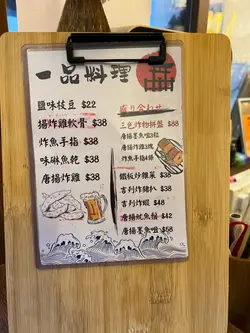 一品料理
鹽味枝豆 $22
揚炸雞軟骨 $38
炸魚手指 $38
味醂魚乾 $38
唐揚炸雞 $38
盛り合わせ
三色炸物拼盤 $88
唐揚墨魚咀3粒
唐揚炸雞3塊
炸魚手指4條
鐵板炒雜菜 $38
吉列炸豬扒 $38
吉列炸蝦 $48
唐揚魷魚鬚 $42
唐揚墨魚咀 $58